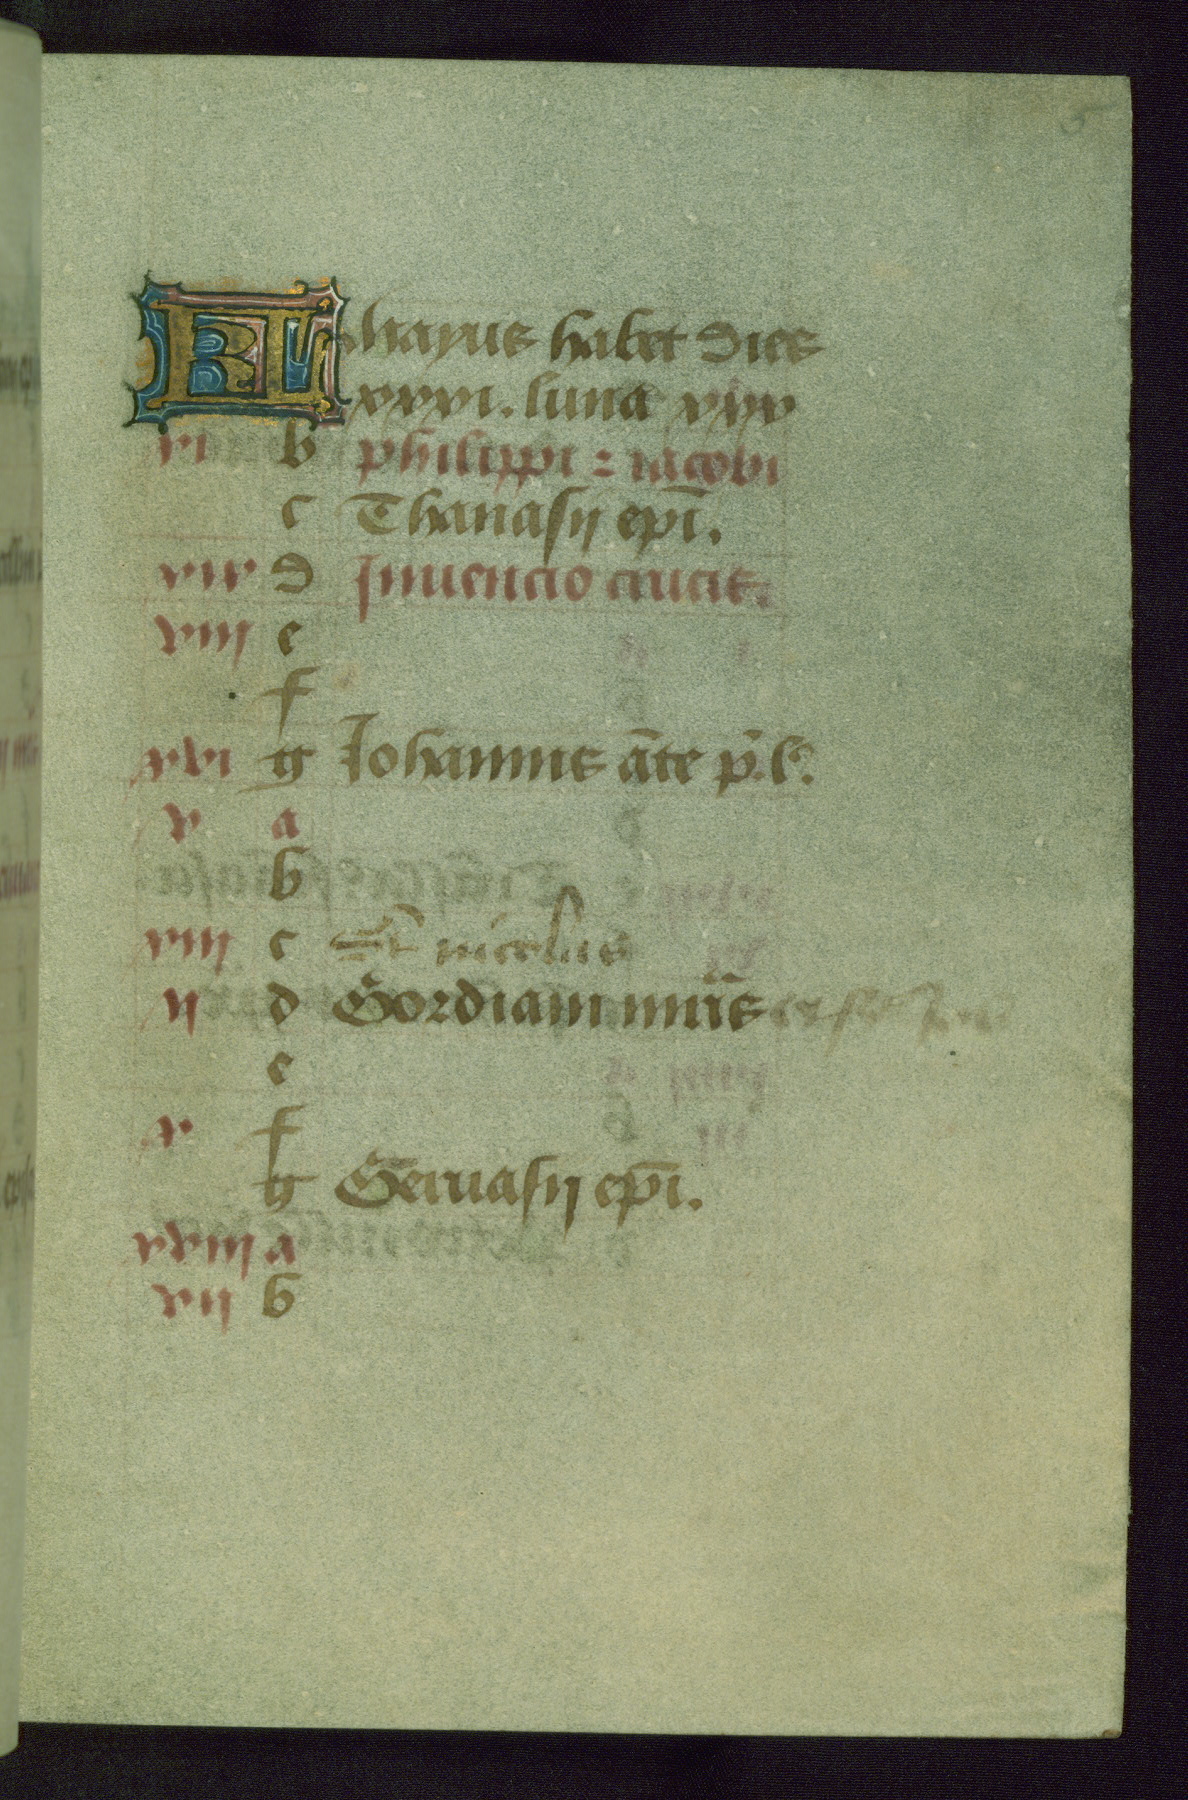 KL Mayus habet dies
xxxi. luna xxx
xi b philippi ⁊ iacobi
c Thanasij ep̄i.
xix d Inuencio crucis.
viii e
f
xvi g Iohannis āte p̄. l.
v a
b
xiii c nicolus
ii d Gordiani mr̄is
e
x f
g Seruasij ep̄i.
xviii a
vii b